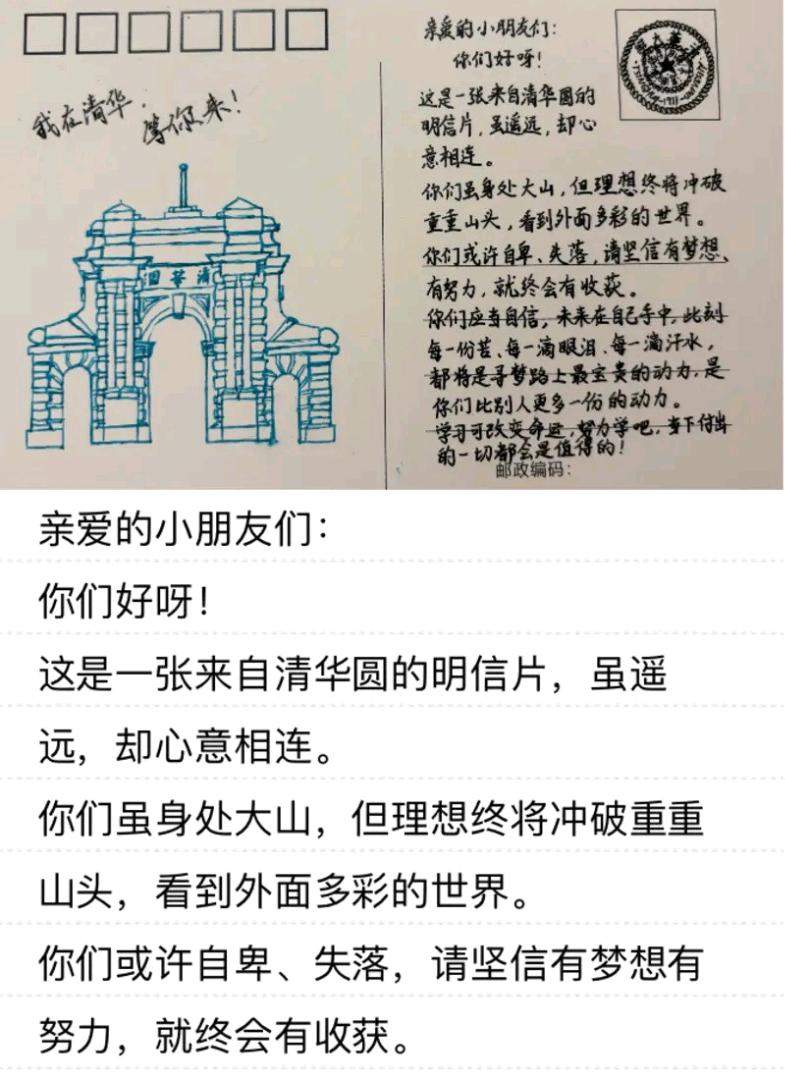 我在清华，
等你来！
清华园
亲爱的小朋友们：
你们好呀！
这是一张来自清华圆的
明信片，虽遥远，却心
意相连。
你们虽身处大山，但理想终将冲破
重重山头，看到外面多彩的世界。
你们或许自卑、失落，请坚信有梦想、
有努力，就终会有收获。
你们应当自信，未来在自己手中，此刻
每一份苦、每一滴眼泪、每一滴汗水，
都将是寻梦路上最宝贵的动力，是
你们比别人更多一份的动力。
学习可改变命运，努力学吧，当下付出
的一切都会是值得的！
邮政编码：
亲爱的小朋友们：
你们好呀！
这是一张来自清华圆的明信片，虽遥
远，却心意相连。
你们虽身处大山，但理想终将冲破重重
山头，看到外面多彩的世界。
你们或许自卑、失落，请坚信有梦想有
努力，就终会有收获。